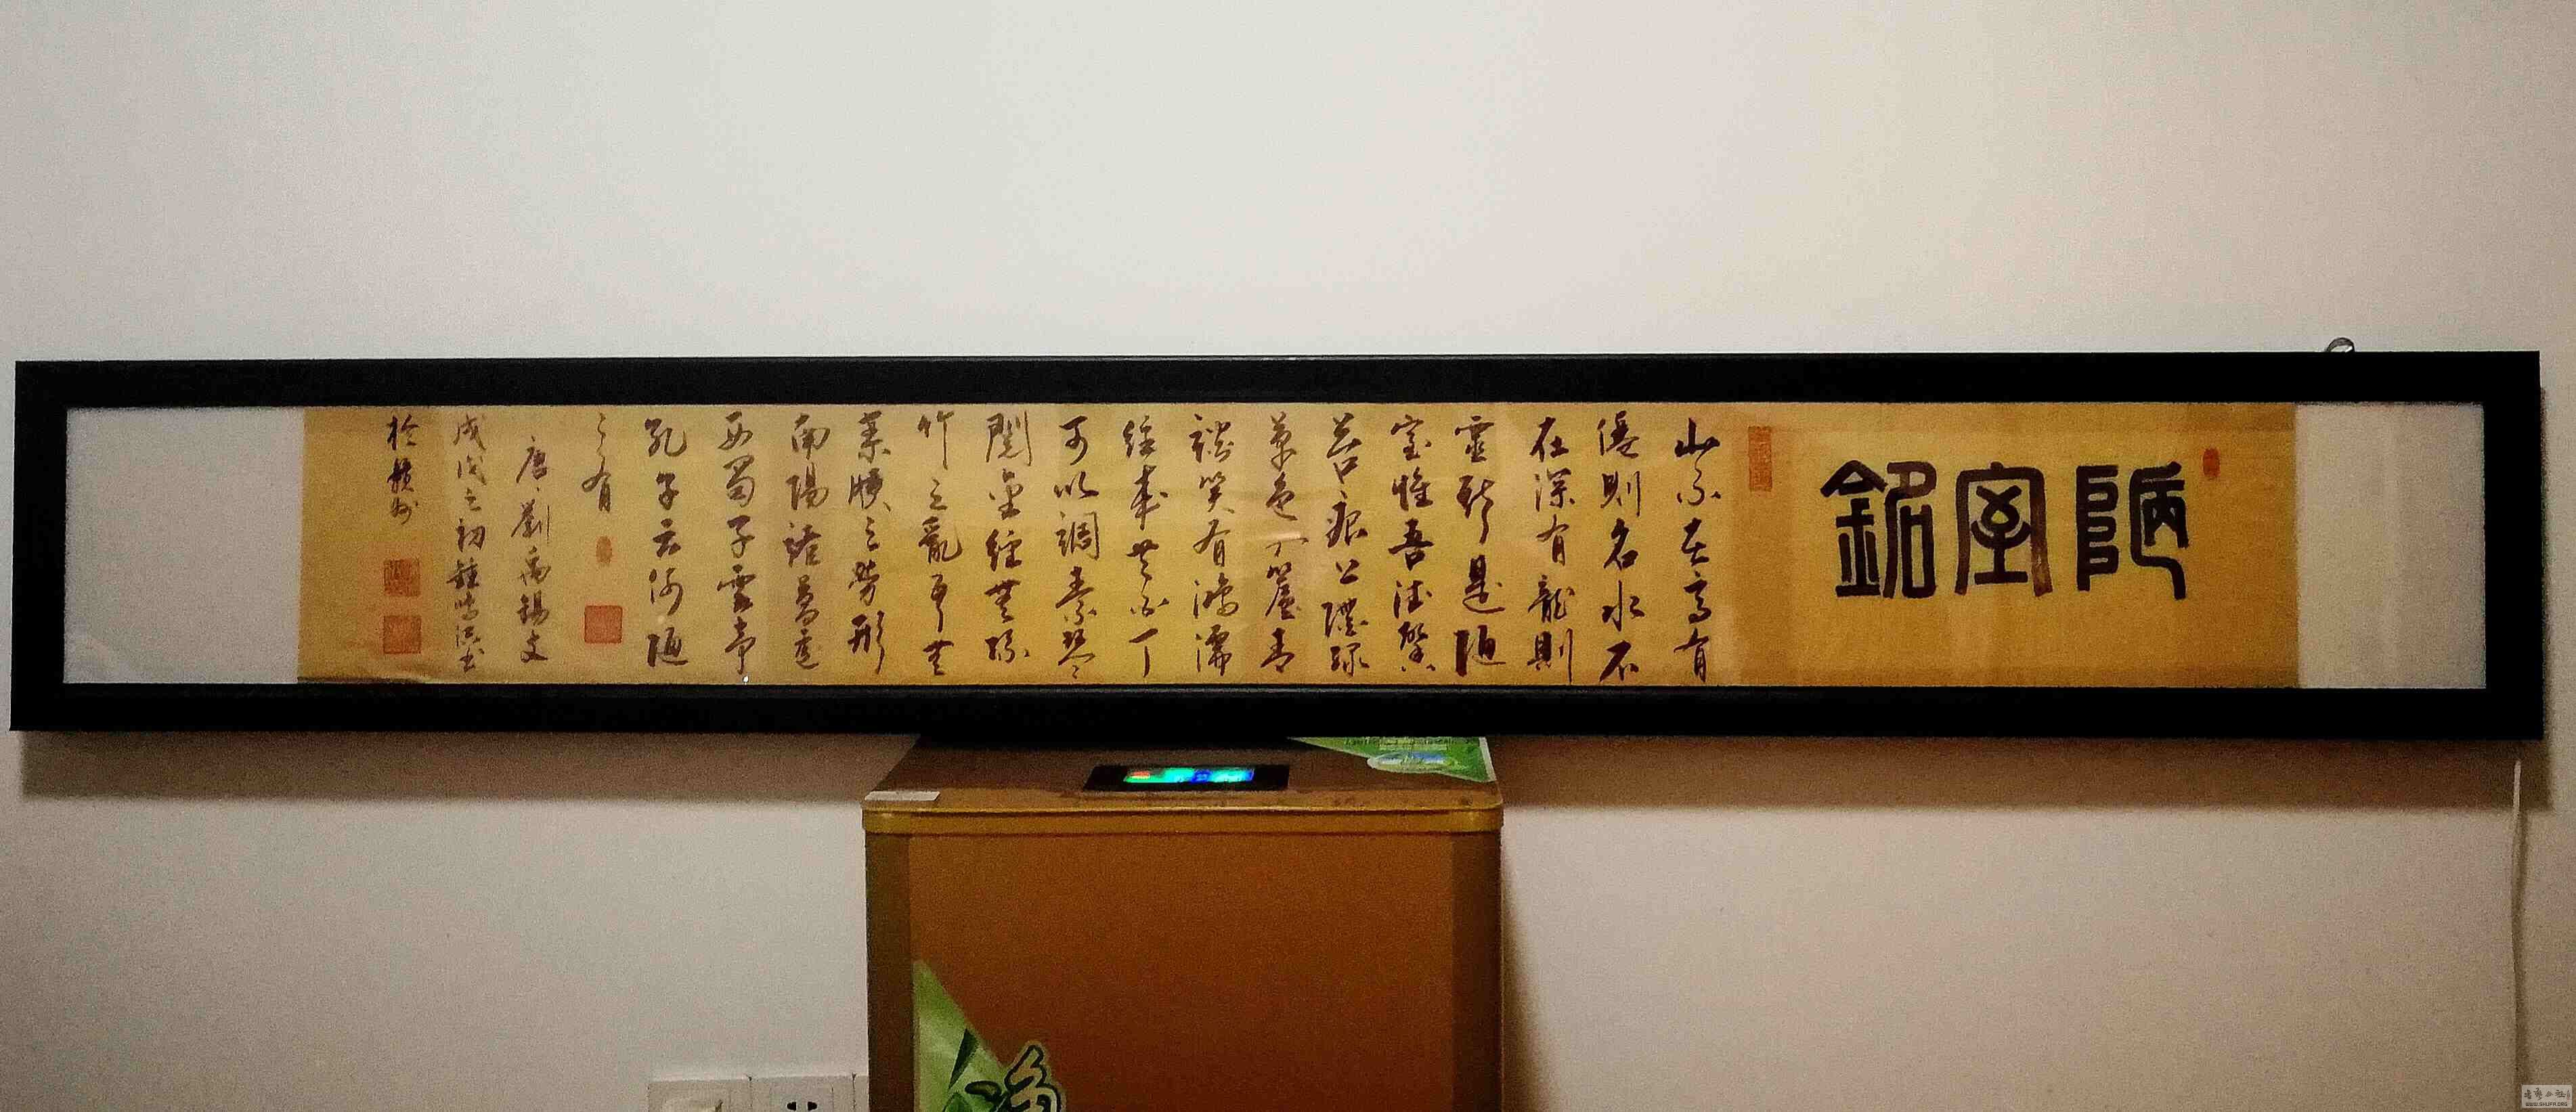 陋室銘
山不在高有
僊則名水不
在深有龍則
靈斯是陋
室惟吾德馨
苔痕上階綠
草色入簾青
談笑有鴻儒
往來無白丁
可以調素琴
閱金經無絲
竹之亂耳無
案牘之勞形
南陽諸葛廬
西蜀子雲亭
孔子云何陋
之有
唐劉禹錫文
戊戌之初鍾鳴書
於贛州